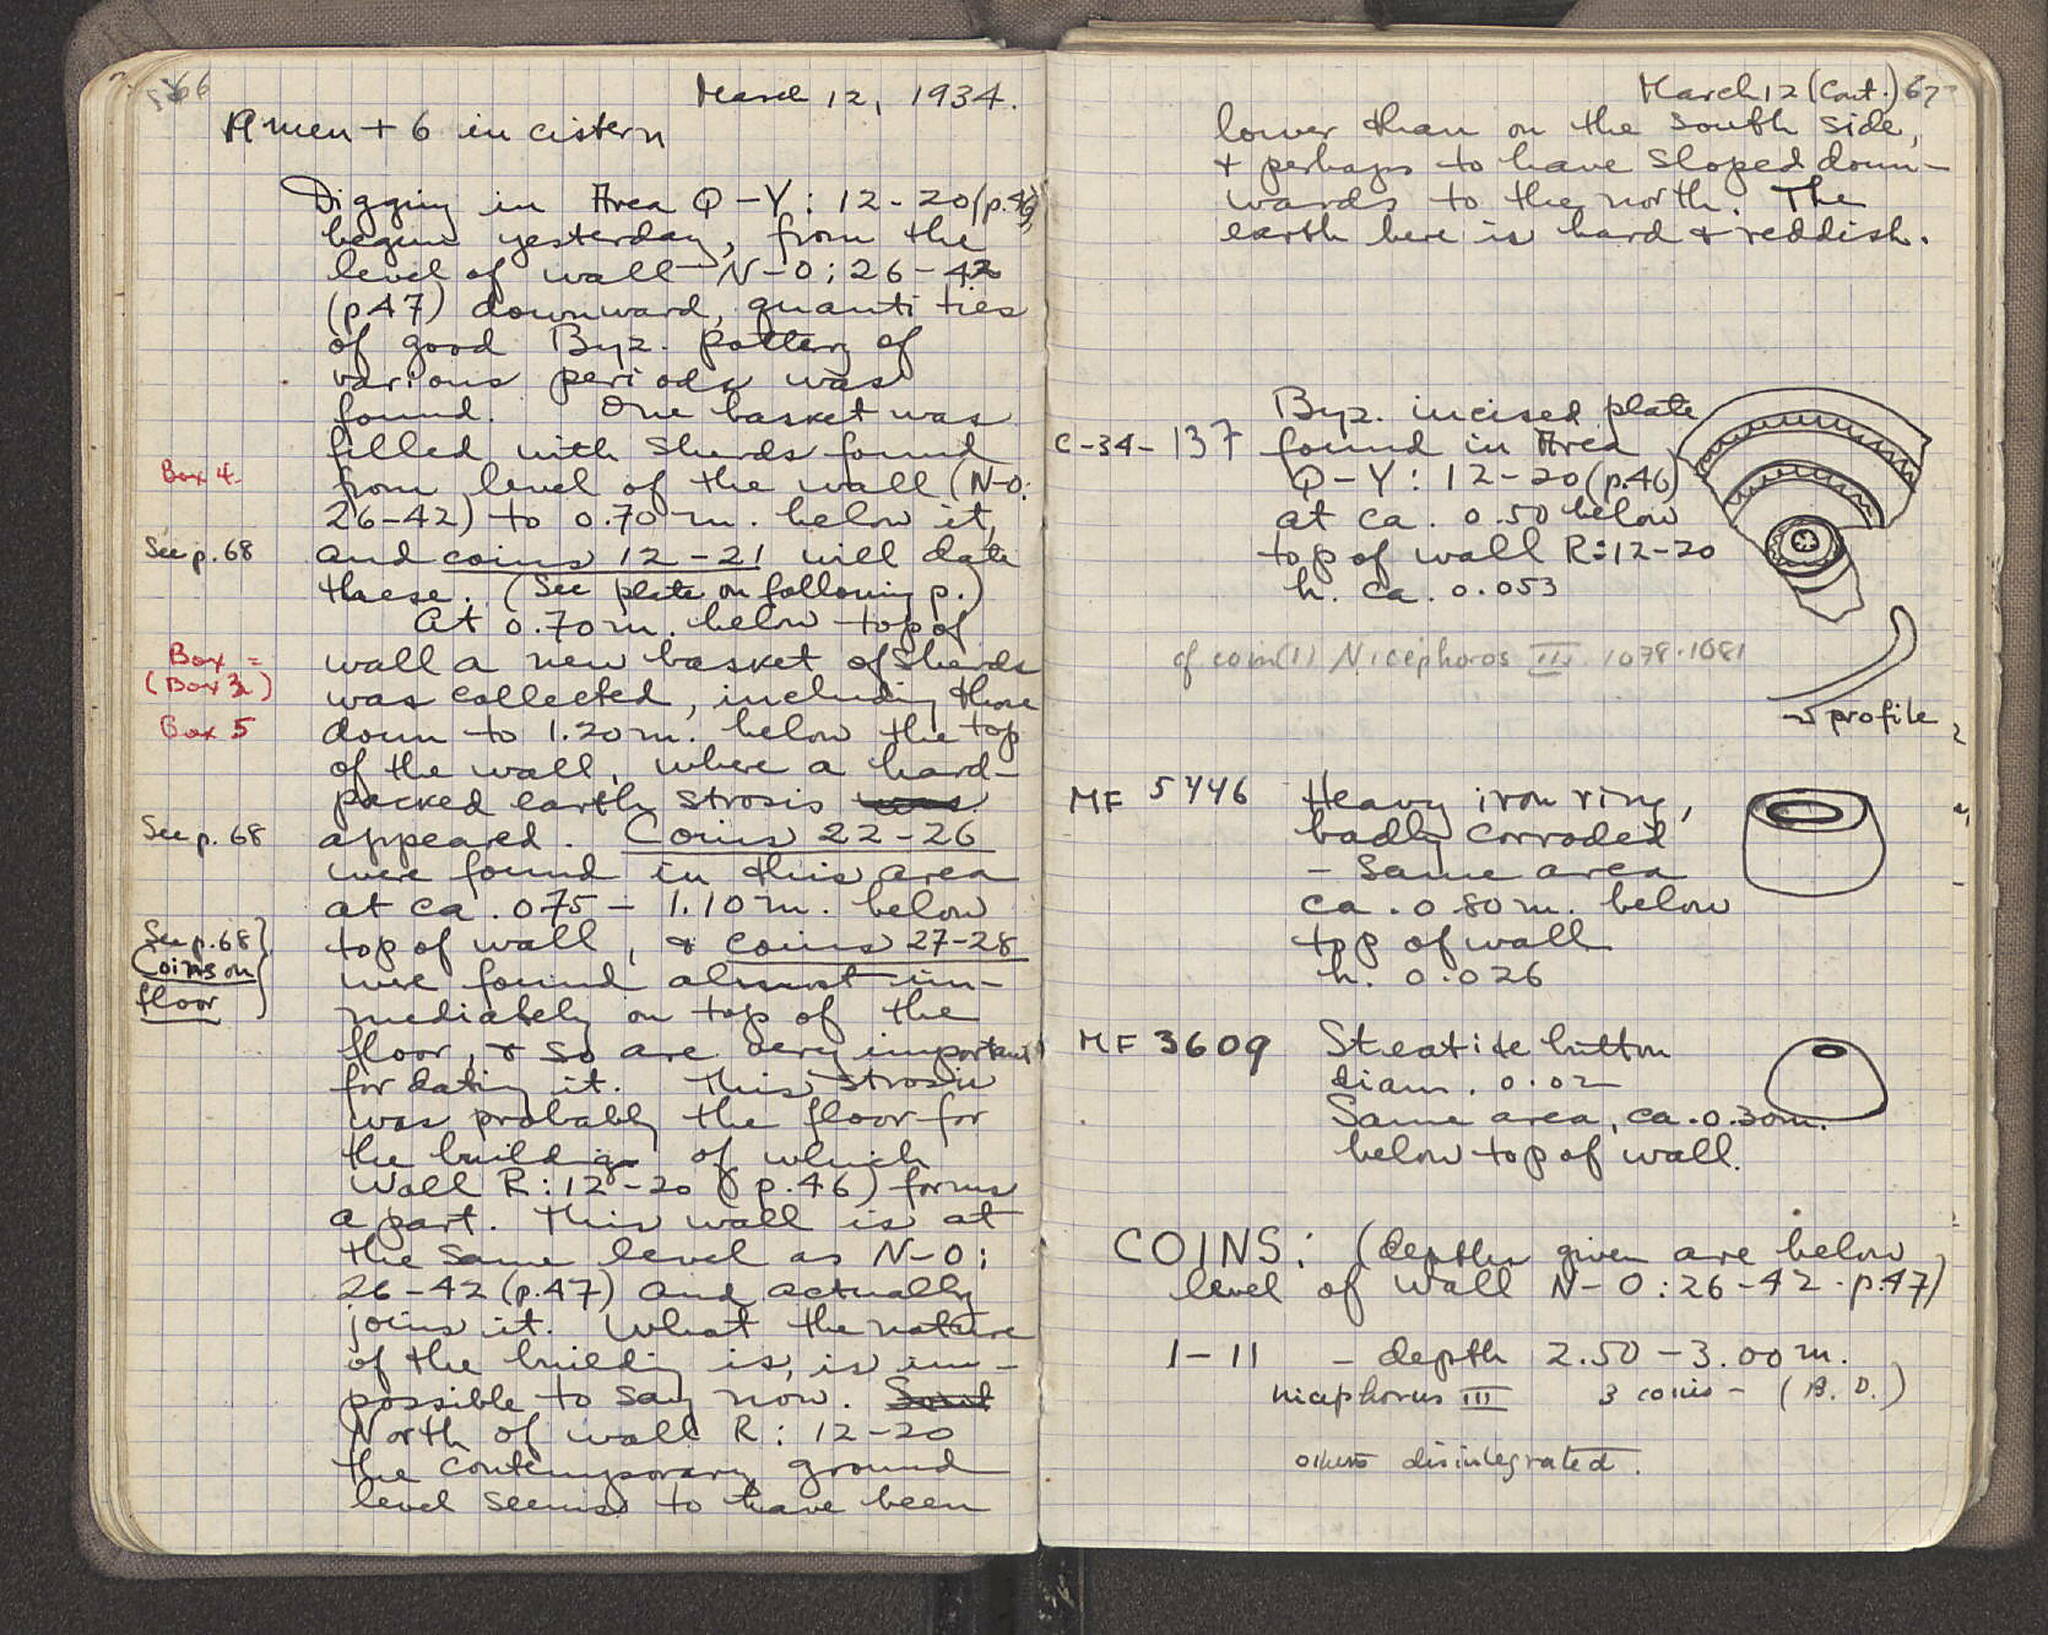 66
March 12, 1934.
19 men + 6 in cistern
Digging in Area Q-Y: 12-20 (p.46)
begun yesterday, from the
level of wall N-O: 26-42
(p47) downward, quantities
of good Byz. pottery of
various periods was
found. One basket was
filled with sherds found
Box 4
from level of the wall (N-O:
26-42) to 0.70 m. below it,
See p. 68
and coins 12-21 will date
these. (See plate on following p.)
At 0.70 m. below top of
Box =
wall a new basket of sherds
(Box 3)
was collected, including those
Box 5
down to 1.20 m. below the top
of the wall, where a hard-
packed earth strosis was
See p. 68
appeared. Coins 22-26
were found in this area
at ca. 075 - 1.10 m. below
See p. 68
top of wall, & coins 27-28
Coins on
were found almost im-
floor
mediately on top of the
floor, & so are very important
for dating it. This strosis
was probably the floor for
the buildig of which
Wall R: 12-20 (p.46) forms
a part. This wall is at
the same level as N-O:
26-42 (p.47) and actually
joins it. What the nature
of the building is, is im-
possible to say now.
North of wall R: 12-20
the contemporary ground
level seems to have been
March 12 (Cont.) 67
lower than on the south side,
& perhaps to have sloped down-
wards to the north. The
earth here is hard & reddish.
Byz. incised plate
C-34-137 found in Area
Q-Y: 12-20 (p.46)
at ca. 0.50 below
top of wall R: 12-20
h. ca. 0.053
cf coin(1) Nicephoros III 1078-1081
profile
MF 5446 Heavy iron ring,
badly corroded
- Same area
ca. 0 80 m. below
top of wall
h. 0.026
MF 3609 Steatite button
diam. 0.02
Same area, ca. 0.30m.
below top of wall.
COINS: (depths given are below
level of Wall N-O: 26-42 - p.47)
1-11 - depth 2.50 - 3.00 m.
nicephorus III 3 coins - (B. D.)
others disintegrated.